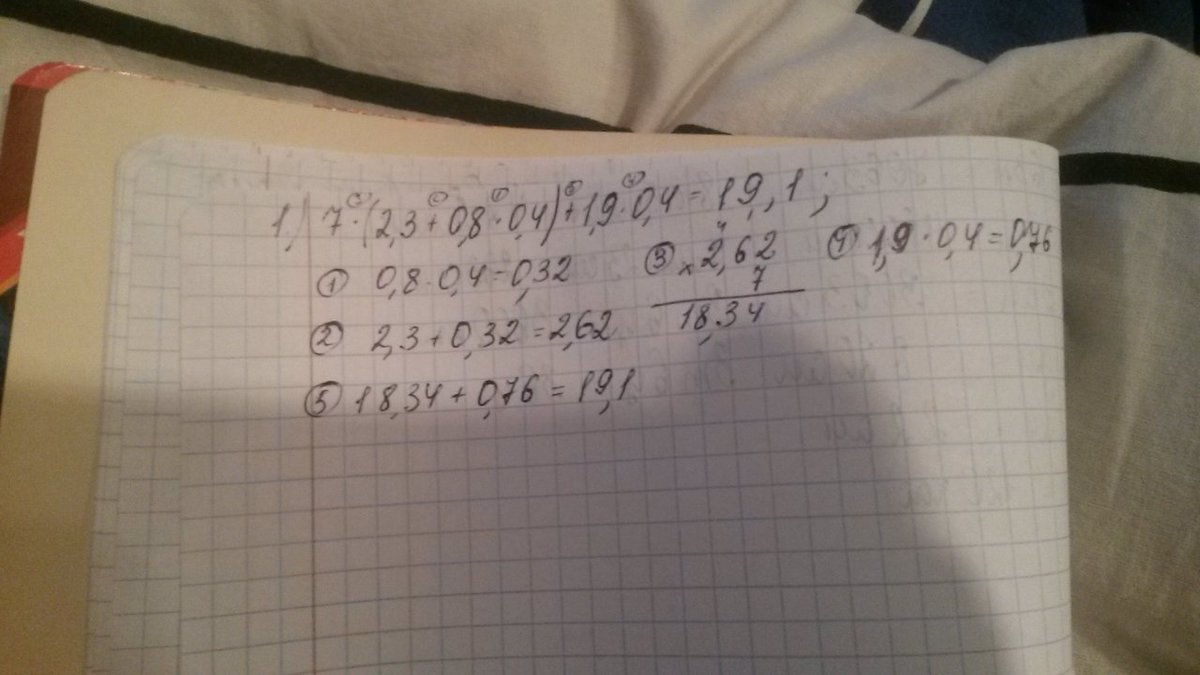 1) 7·(2,3+0,8·0,4)+1,9·0,4=19,1;
① 0,8·0,4=0,32
② 2,3+0,32=2,62
③ ×2,62
7
18,34
④ 1,9·0,4=0,76
⑤ 18,34+0,76=19,1